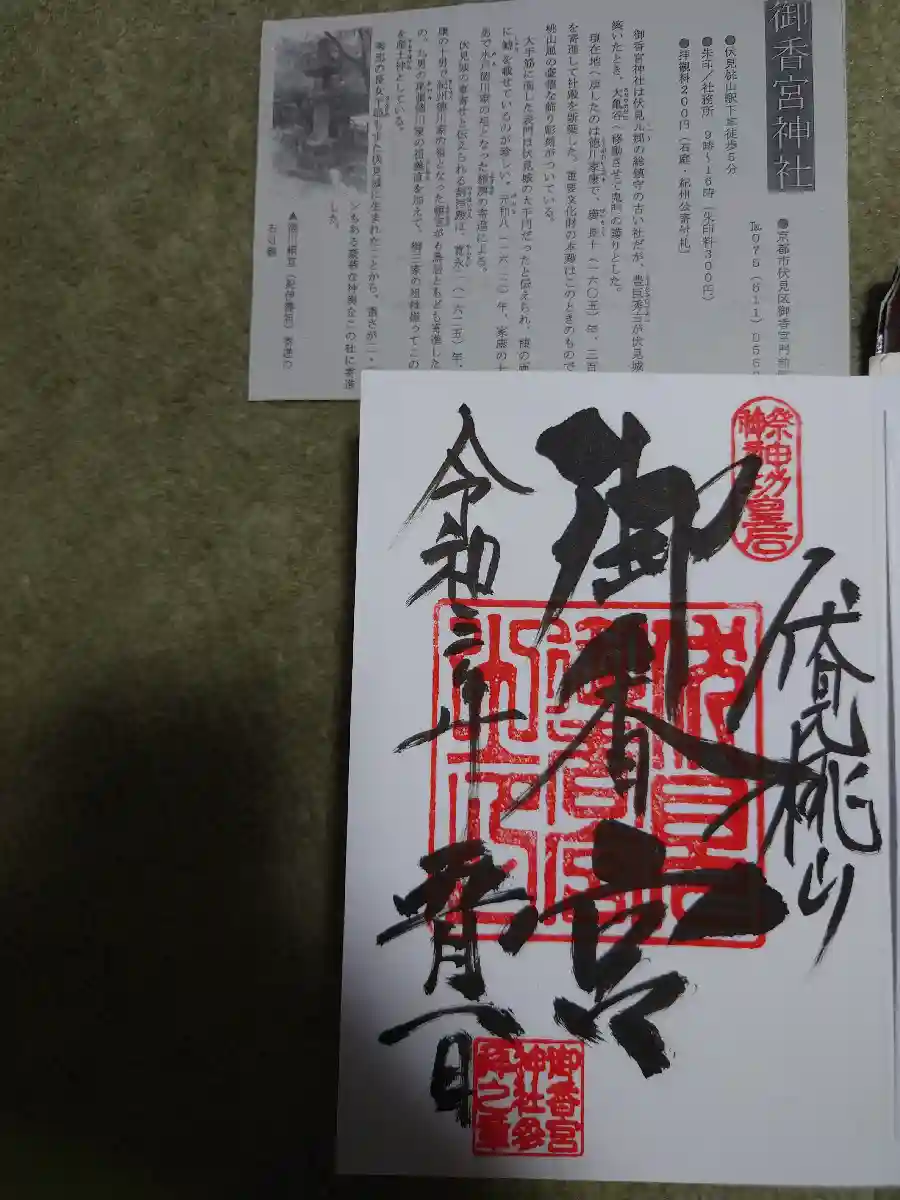 御香宮神社
●京都市伏見区御香宮門前町
℡075(611)055
●伏見桃山駅下車徒歩5分
●朱印/社務所 9時〜16時(朱印料300円)
●拝観料200円(石庭・紀州公寄付札)
御香宮神社は伏見九郷の総鎮守の古い社だが、豊臣秀吉が伏見城
築いたとき、大亀谷へ移動させて鬼門の護りとした。
現在地へ戻したのは徳川家康で、慶長十(一六〇五)年、三百
を寄進して社殿を新築した。重要文化財の本殿はこのときのもので
桃山風の豪華な飾り彫刻がついている。
大手筋に面した表門は伏見城の大手門だったと伝えられ、
に
を載せているのが珍しい。元和八(一六二二)年、家康の十
男で水戸徳川家の祖となった頼房の寄進による。
伏見城の車寄せと伝えられる割拝殿は、寛永二(一六二五)年、
康の十男で紀州徳川家の祖となった頼宣が
寄進した
の。九男の尾張徳川家の祖義直を加えて、御三家の祖は揃ってこの
を産土神としている。
伏見城に生まれたことから、重さが二・
ンもある豪華な神輿をこの社に寄進
した。
▲徳川頼宣(紀伊藩祖)寄進の
石灯籠
祭神神功皇后
伏見桃山
御香宮
令和三年
月
日
御香宮
神社参
拝之章